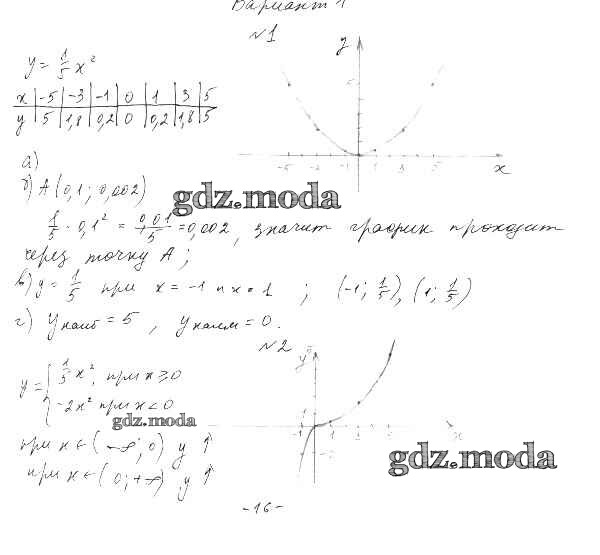 Вариант 1
№1
y = 1/5 x²
x | -5 | -3 | -1 | 0 | 1 | 3 | 5
y | 5 | 1,8 | 0,2 | 0 | 0,2 | 1,8 | 5
y
x
-5
5
а)
б) А (0,1; 0,002)
gdz.moda
1/5 · 0,1² = 0,01/5 = 0,002, значит график проходит
через точку А;
в) y = 1/5 при x = -1 и x = 1 ; (-1; 1/5), (1; 1/5)
г) y наиб = 5 , y наим = 0.
№2
y = { 1/5 x², при x ≥ 0
-2x² при x < 0
y
x
gdz.moda
при x ∈ (-∞; 0) y ↑
при x ∈ (0; +∞) y ↑
gdz.moda
-16-